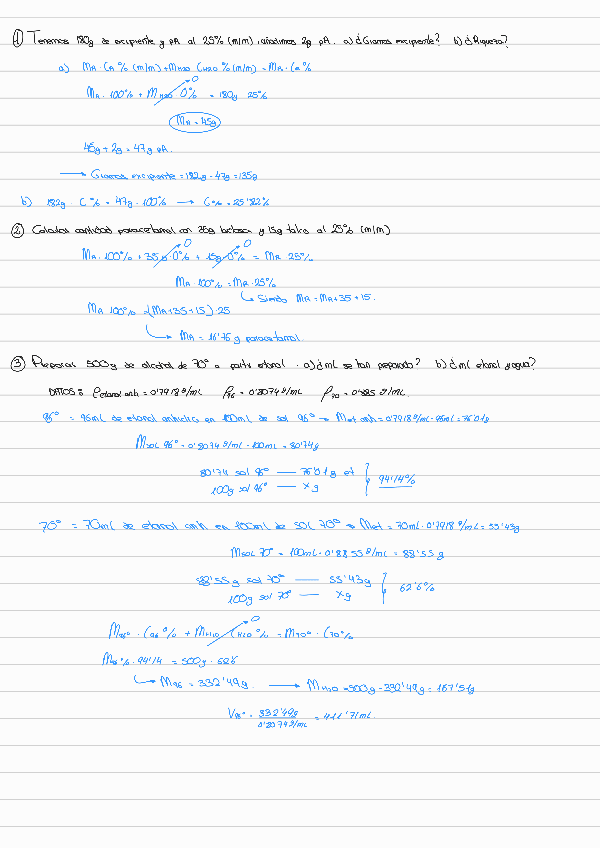 ① Tenemos 180g de excipiente y pA al 25% (m/m), añadimos 2g pA. a) ¿Gramos excipiente? b) ¿Riqueza?
a) MA · CA % (m/m) + MH2O CH2O % (m/m) = MA · CA %
MA · 100% + MH2O · 0% = 180g · 25%
0
MA = 45g
45g + 2g = 47g pA.
→ Gramos excipiente = 182g - 47g = 135g
b) 182g · C% = 47g · 100% → C% = 25'82%
② Calcular cantidad paracetamol con 35g lactosa y 15g talco al 25% (m/m)
0 0
MA · 100% + 35g · 0% + 15g · 0% = MA · 25%
MA · 100% = MA · 25%
↳ Siendo MA = MA + 35 + 15.
MA · 100% = (MA + 35 + 15) · 25
↳ MA = 16'75g paracetamol.
③ Preparar 500g de alcohol de 70° a partir etanol . a) ¿mL se han preparado? b) ¿mL etanol y agua?
DATOS: ρetanol anh = 0'7918 g/mL ρ96 = 0'8074 g/mL ρ70 = 0'885 g/mL.
96° = 96mL de etanol anhidro en 100mL de sol 96° → Met anh = 0'7918 g/mL · 96mL = 76'01g
Msol 96° = 0'8074 g/mL · 100mL = 80'74g
80'74 sol 96° — 76'01g et
100g sol 96° — x g
94'14%
70° = 70mL de etanol anh en 100mL de sol 70° → Met = 70mL · 0'7918 g/mL = 55'43g
Msol 70° = 100mL · 0'8855 g/mL = 88'55 g
88'55 g sol 70° — 55'43g
100g sol 70° — x g
62'6%
0
M96° · C96% + MH2O CH2O % = M70° · C70%
M96% · 94'14 = 500g · 62'6
↳ M96 = 332'49g. → MH2O = 500g - 332'49g = 167'51g
V96° = 332'49g / 0'8074 g/mL = 411'71mL.